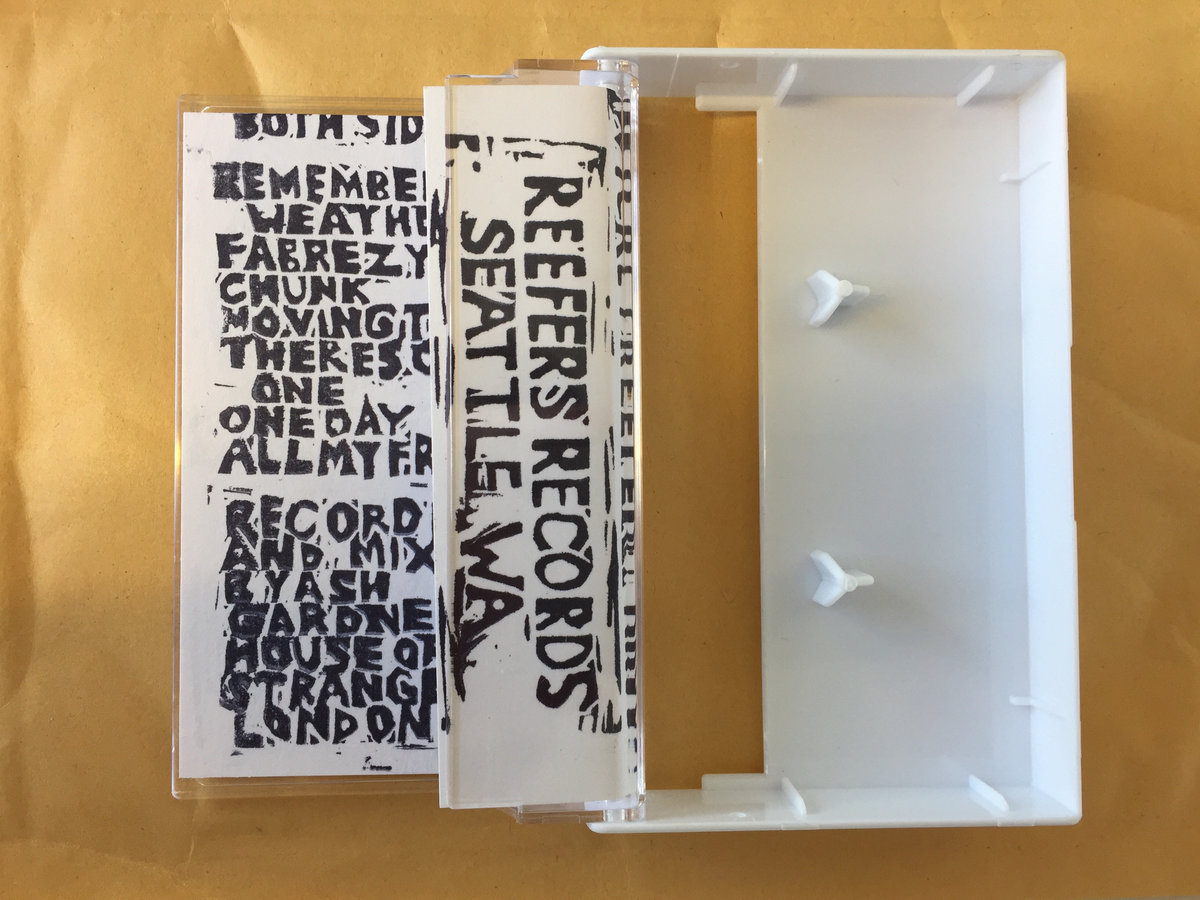 BOTH SID
REMEMBE
WEATHE
FABREZY
CHUNK
MOVING T
THERES
ONE
ONE DAY
ALL MY FR
RECORD
AND MIX
BY ASH
GARDNE
HOUSE OF
STRANG
LONDON
REEFERS RECORDS
SEATTLE WA